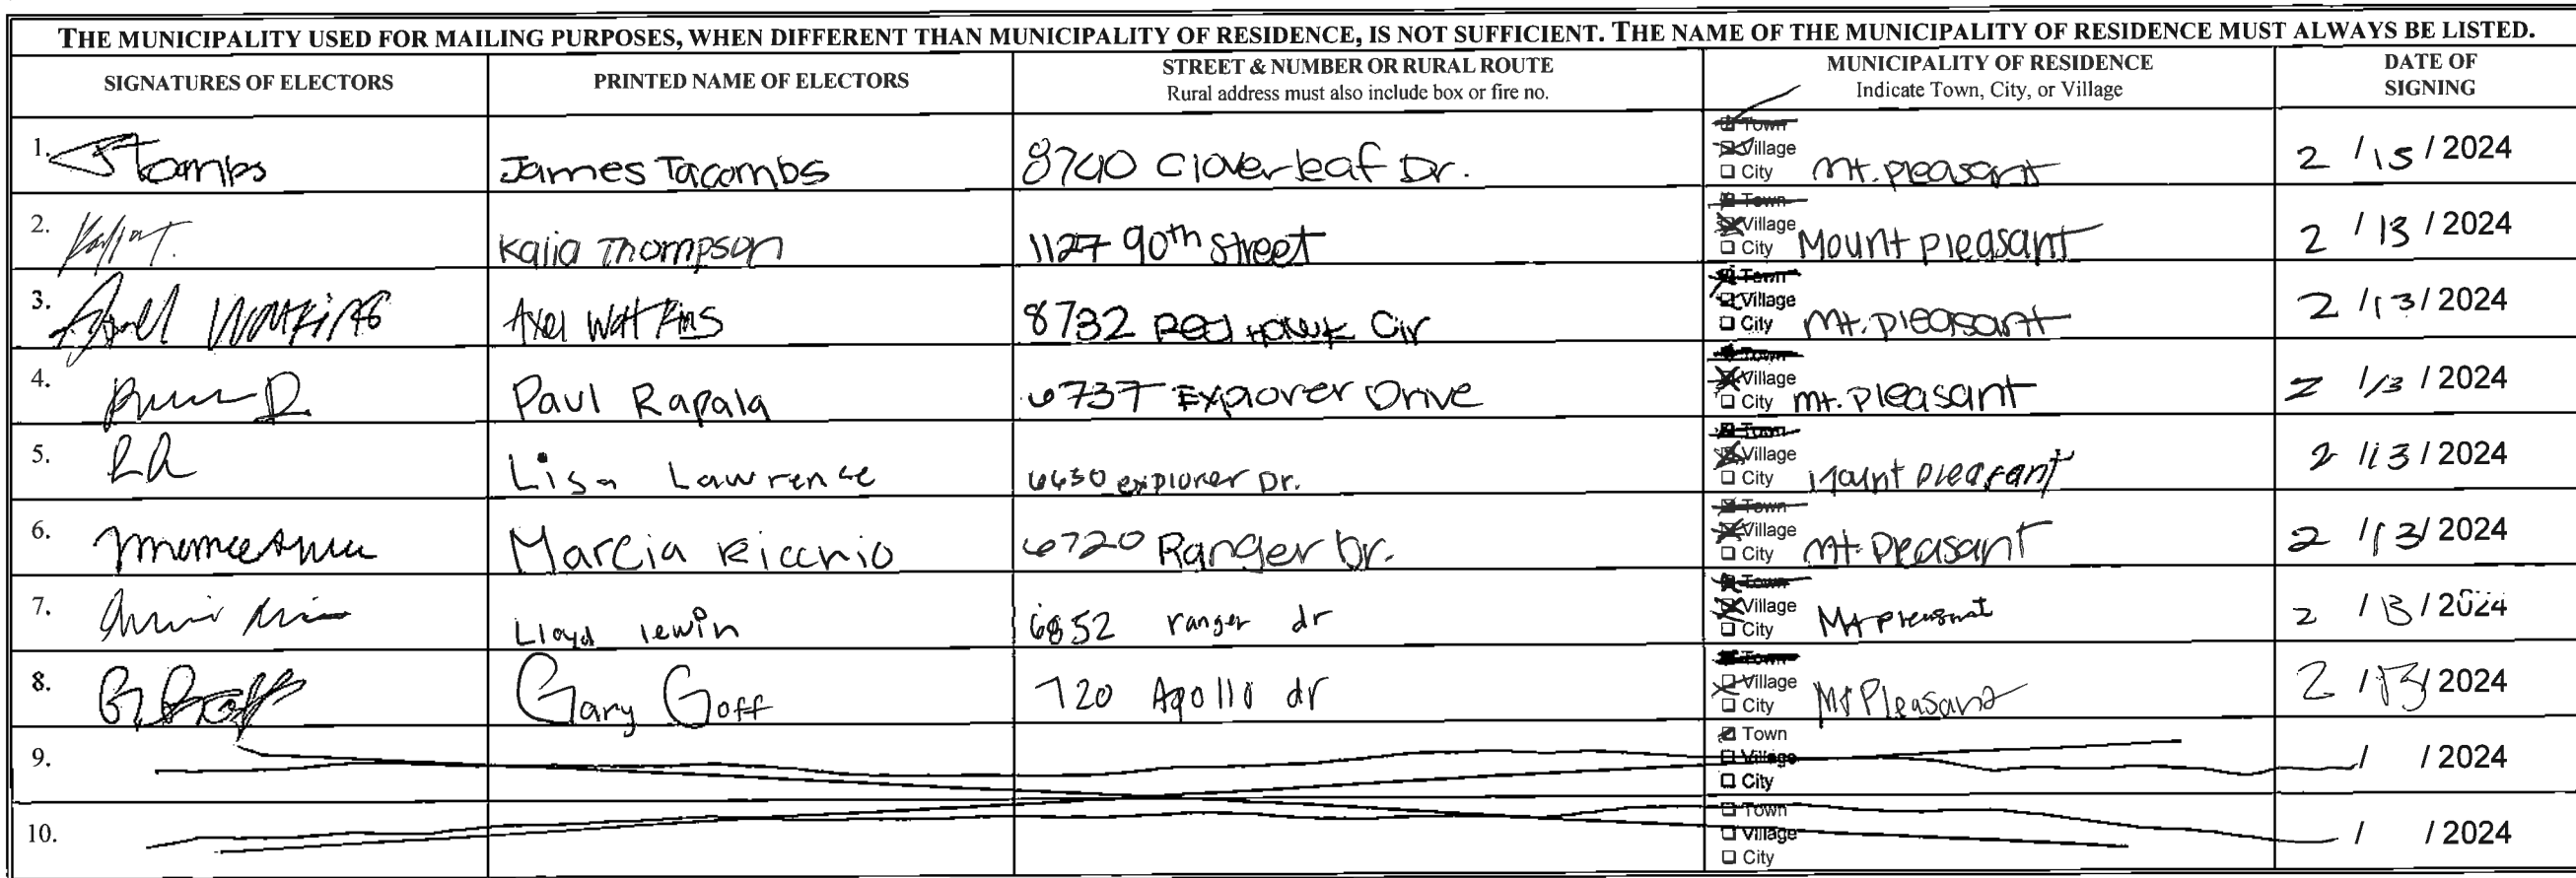 THE MUNICIPALITY USED FOR MAILING PURPOSES, WHEN DIFFERENT THAN MUNICIPALITY OF RESIDENCE, IS NOT SUFFICIENT. THE NAME OF THE MUNICIPALITY OF RESIDENCE MUST ALWAYS BE LISTED.
SIGNATURES OF ELECTORS PRINTED NAME OF ELECTORS STREET & NUMBER OR RURAL ROUTE Rural address must also include box or fire no. MUNICIPALITY OF RESIDENCE Indicate Town, City, or Village DATE OF SIGNING
1. James Tacombs 8740 Cloverleaf Dr. Town Village City Mt. pleasant 2 / 15 / 2024
2. Kaija Thompson 1127 90th Street Town Village City Mount pleasant 2 / 13 / 2024
3. Axel Watkins 8732 Red Hawk Cir Town Village City Mt. pleasant 2 / 13 / 2024
4. Paul Rapala 6737 Exporer Drive Town Village City Mt. pleasant 2 / 13 / 2024
5. Lisa Lawrence 6630 explorer Dr. Town Village City Mount pleasant 2 / 13 / 2024
6. Marcia Ricchio 6720 Ranger Dr. Town Village City Mt. Pleasant 2 / 13 / 2024
7. Lloyd lewin 6852 ranger dr Town Village City Mt pleasant 2 / 13 / 2024
8. Gary Goff 720 Apollo dr Town Village City Mt Pleasant 2 / 13 / 2024
9. Town Village City / / 2024
10. Town Village City / / 2024